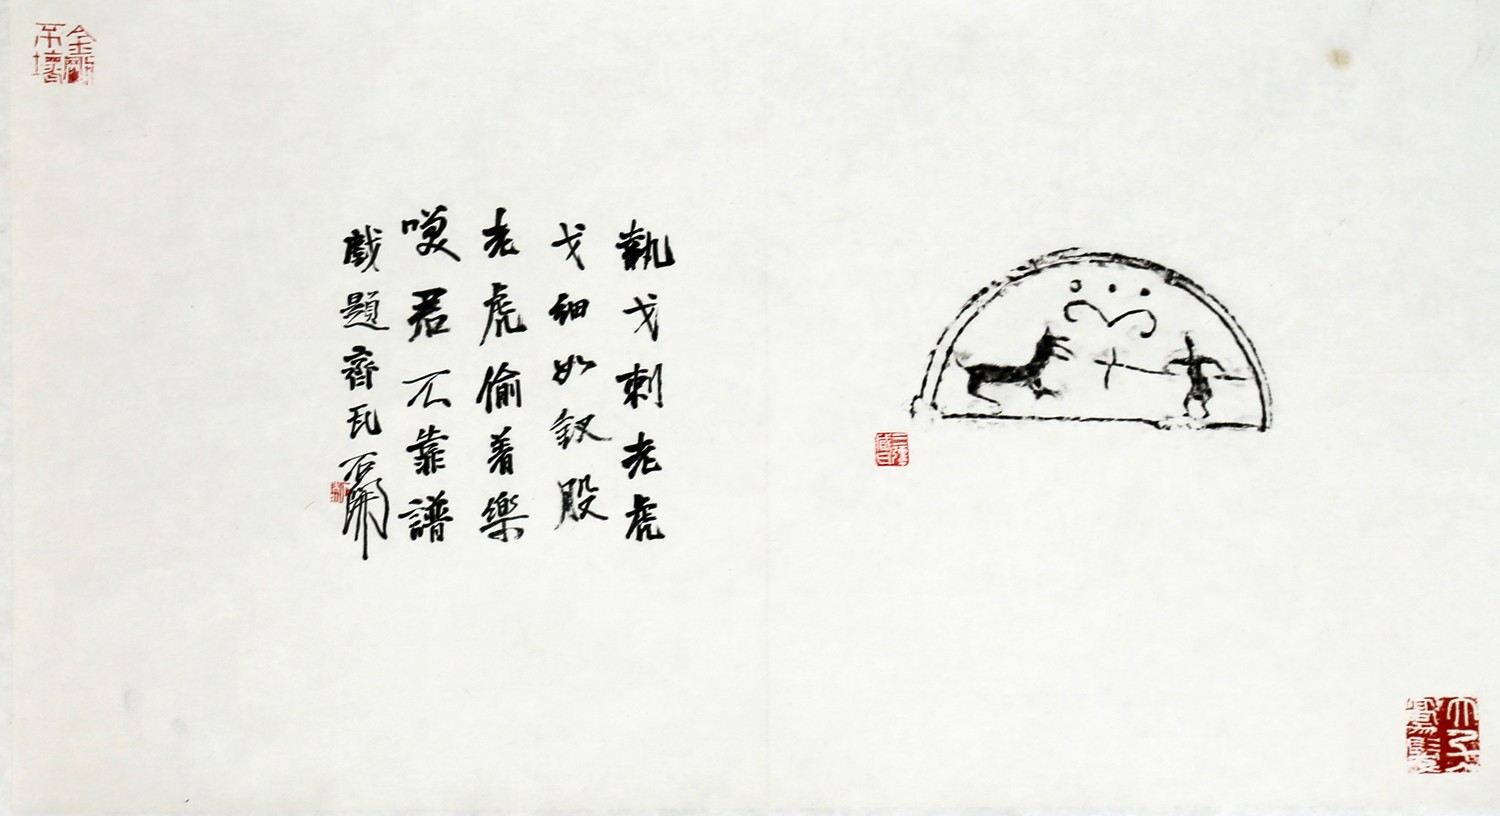 執戈刺老虎
戈細如釵股
老虎偷着樂
嘆君不靠譜
戲題齊瓦 石開
金剛不壞